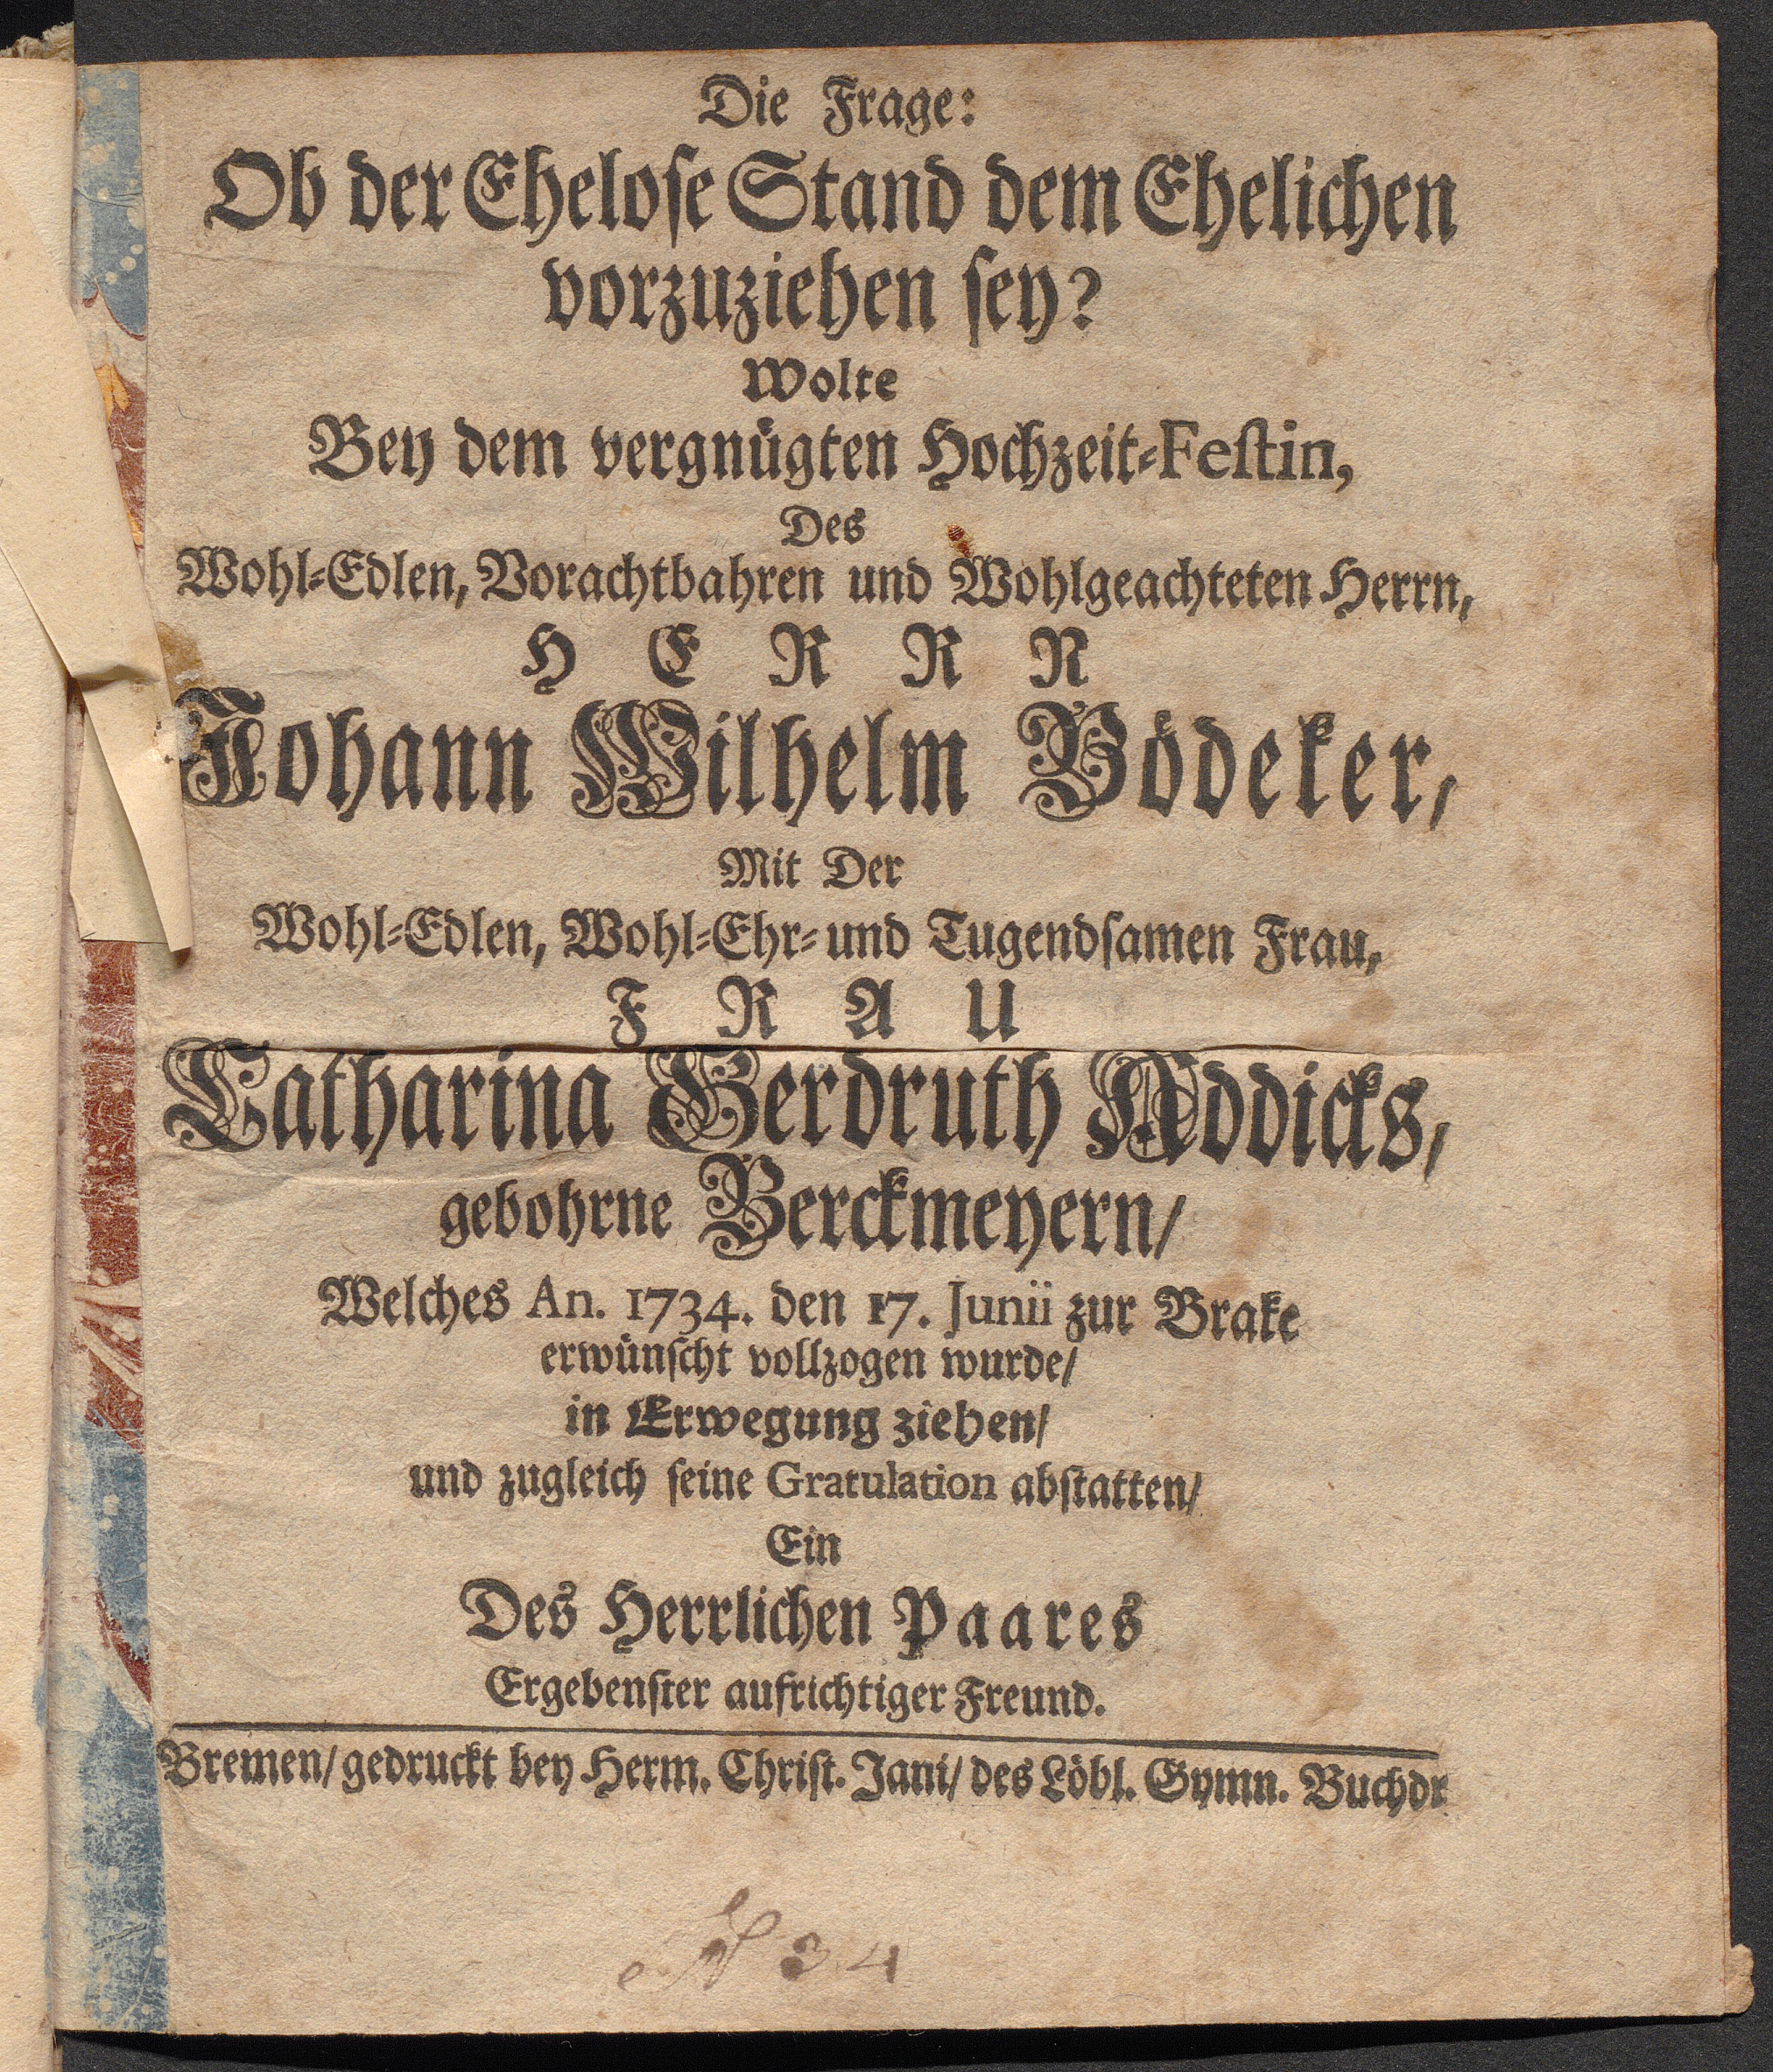 Die Frage:
Ob der Ehelose Stand dem Ehelichen
vorzuziehen sey?
Wolte
Bey dem vergnügten Hochzeit-Festin,
Des
Wohl-Edlen, Vorachtbahren und Wohlgeachteten Herrn,
HERRN
Johann Wilhelm Bödeker/
Mit Der
Wohl-Edlen, Wohl-Ehr- und Tugendsamen Frau,
FRAU
Catharina Gerdruth Addicks/
gebohrne Berckmeyern/
Welches An. 1734. den 17. Junii zur Brake
erwünscht vollzogen wurde/
in Erwegung ziehen/
und zugleich seine Gratulation abstatten/
Ein
Des Herrlichen Paares
Ergebenster aufrichtiger Freund.
Bremen/ gedruckt bey Herm. Christ. Jani/ des Löbl. Gymn. Buchdr
34